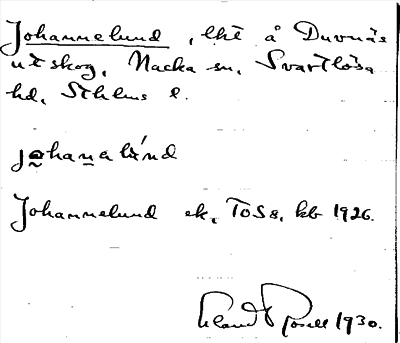 Johannelund, lht å Duvnäs
utskog, Nacka sn, Svartlösa
hd, Sthlms l.
johanalúnd
Johannelund ek, TOSs, kb 1926.
1930.